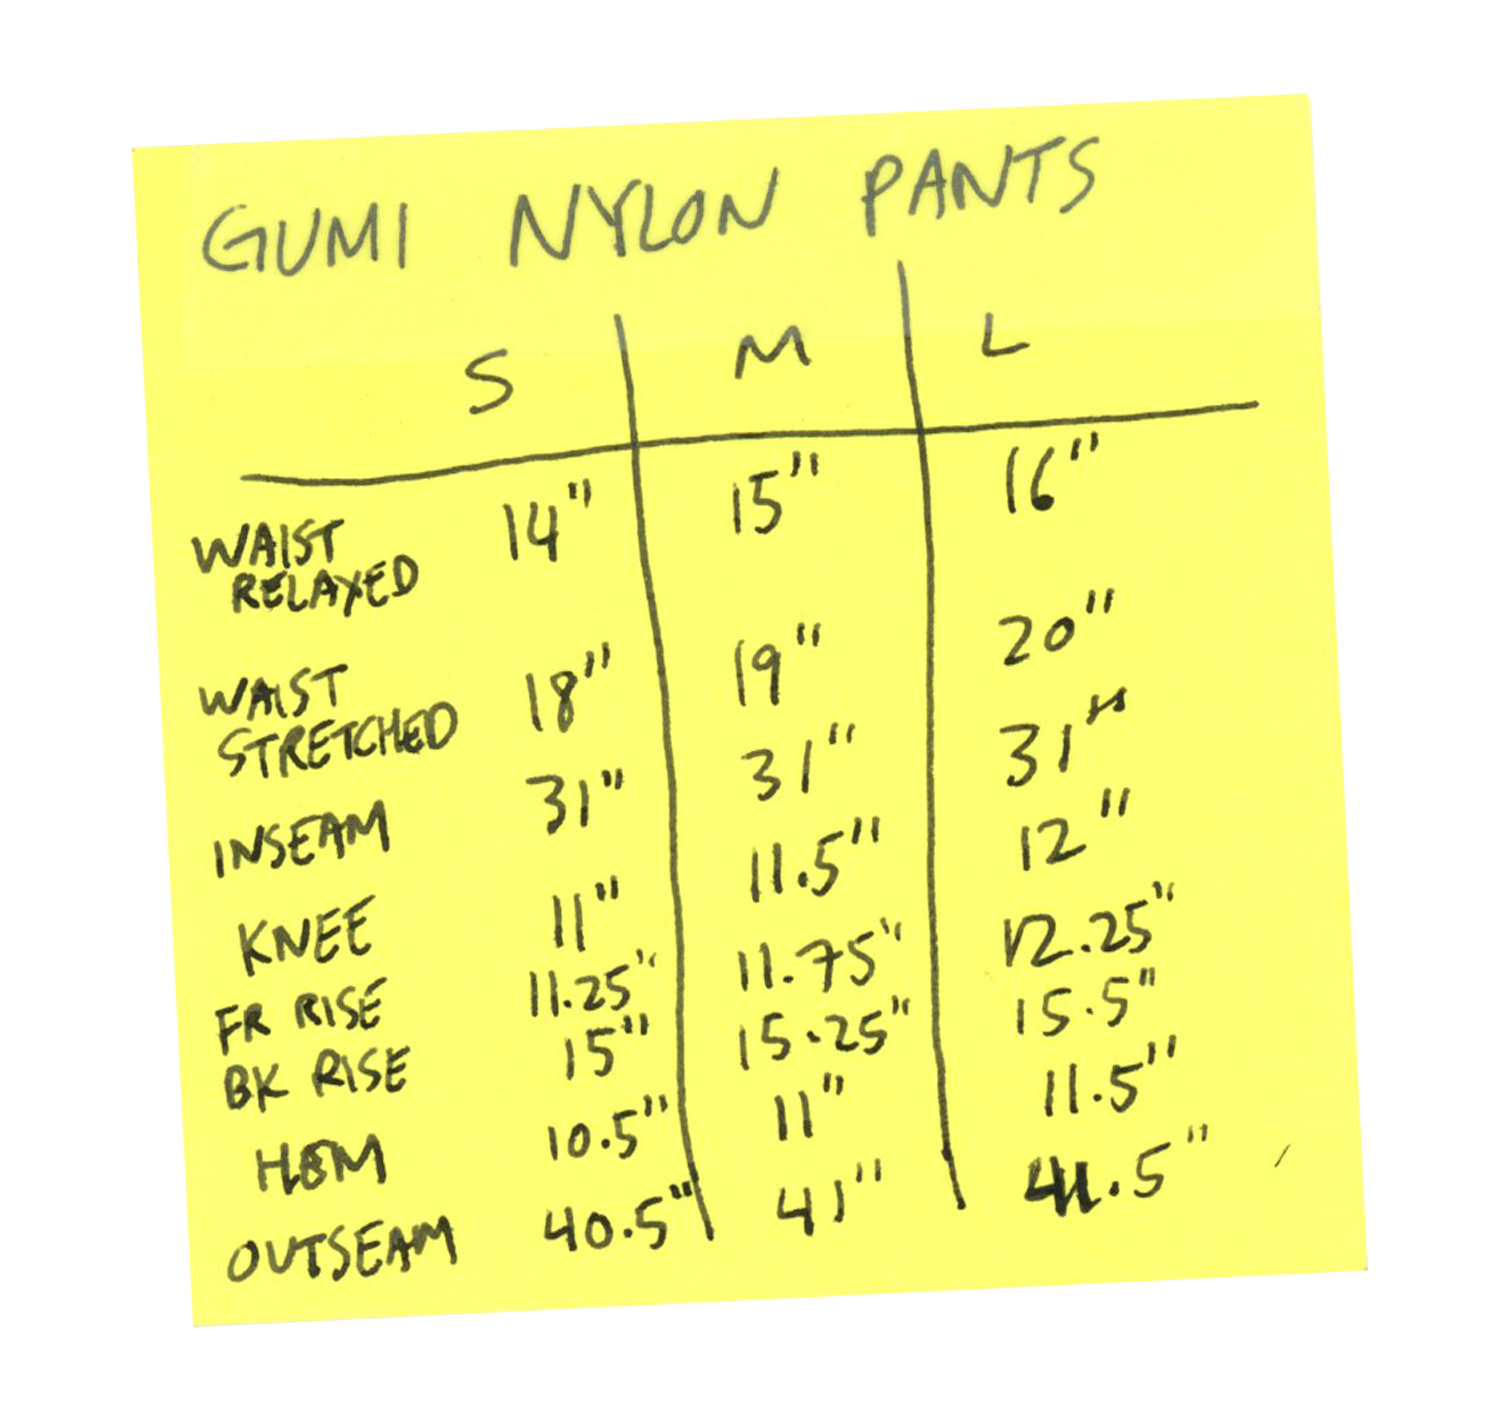 GUMI NYLON PANTS
S M L
WAIST RELAXED 14" 15" 16"
WAIST STRETCHED 18" 19" 20"
INSEAM 31" 31" 31"
KNEE 11" 11.5" 12"
FR RISE 11.25" 11.75" 12.25"
BK RISE 15" 15.25" 15.5"
HEM 10.5" 11" 11.5"
OUTSEAM 40.5" 41" 41.5"